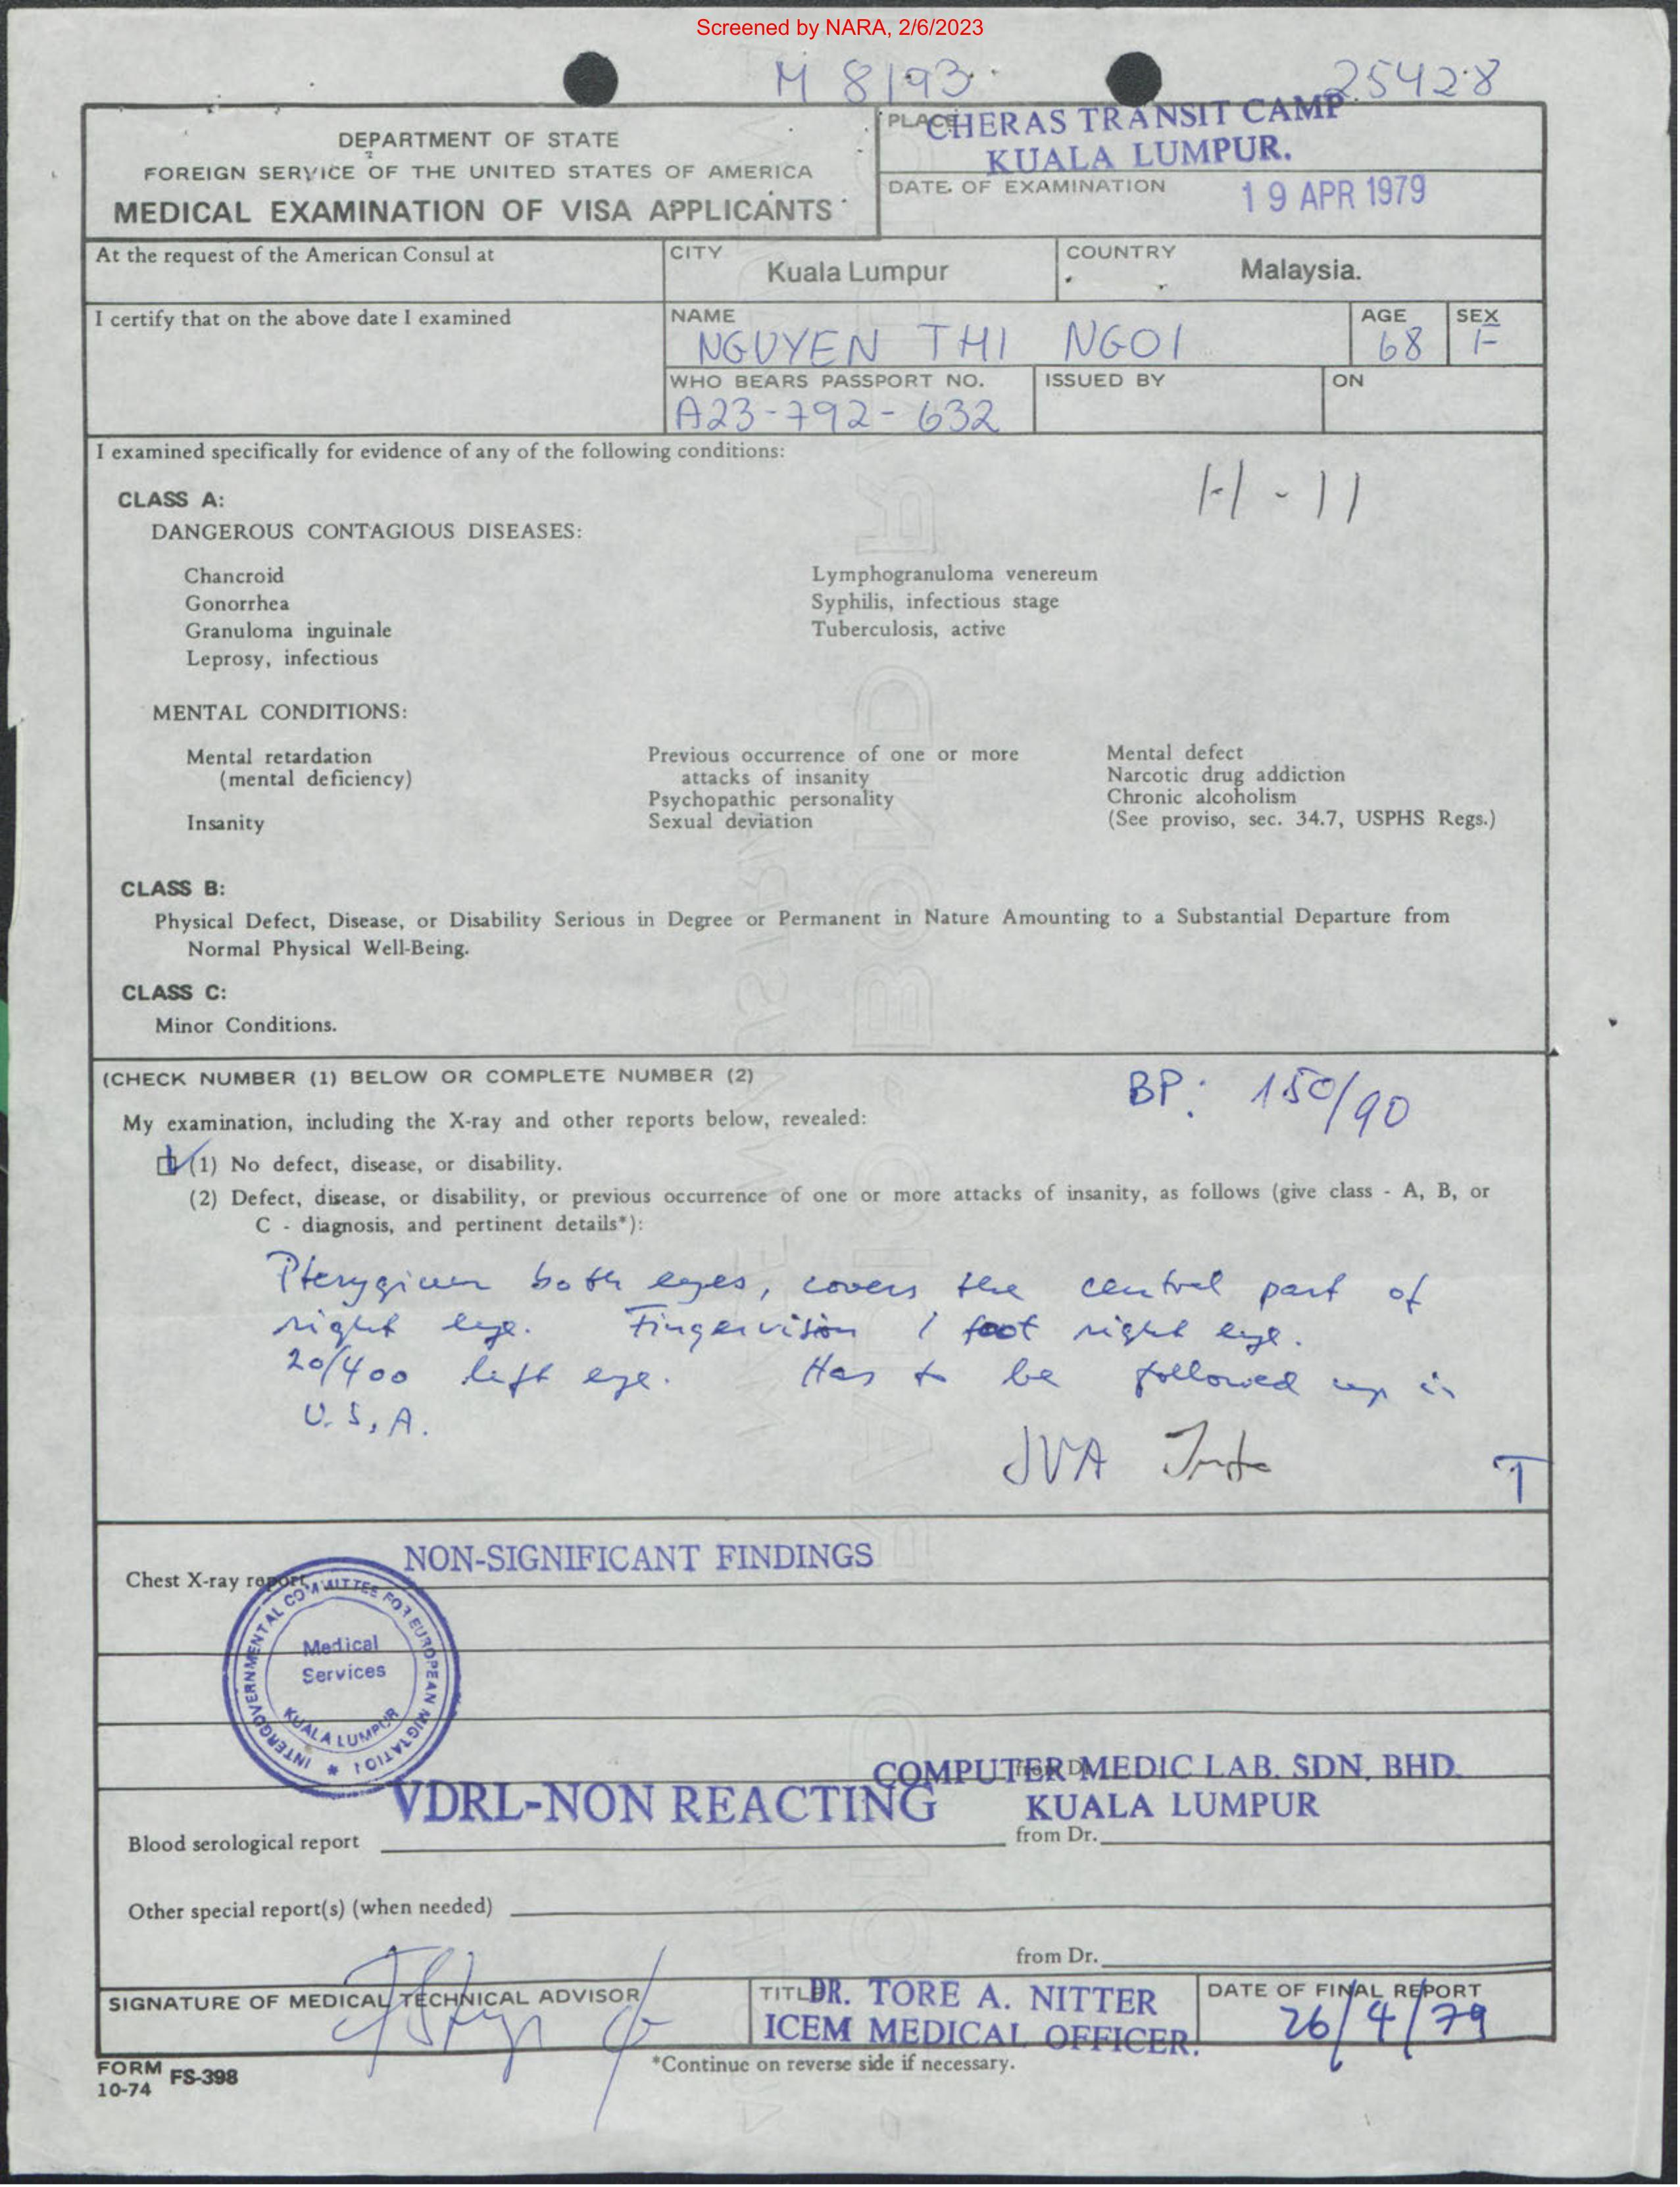 Screened by NARA, 2/6/2023
M 8193
25428
DEPARTMENT OF STATE
FOREIGN SERVICE OF THE UNITED STATES OF AMERICA
MEDICAL EXAMINATION OF VISA APPLICANTS
PLACE
CHERAS TRANSIT CAMP
KUALA LUMPUR.
DATE OF EXAMINATION
19 APR 1979
At the request of the American Consul at
CITY
Kuala Lumpur
COUNTRY
Malaysia.
I certify that on the above date I examined
NAME
NGUYEN THI NGOI
AGE
68
SEX
F
WHO BEARS PASSPORT NO.
A23-792-632
ISSUED BY
ON
I examined specifically for evidence of any of the following conditions:
H-11
CLASS A:
DANGEROUS CONTAGIOUS DISEASES:
Chancroid
Gonorrhea
Granuloma inguinale
Leprosy, infectious
Lymphogranuloma venereum
Syphilis, infectious stage
Tuberculosis, active
MENTAL CONDITIONS:
Mental retardation
(mental deficiency)
Insanity
Previous occurrence of one or more
attacks of insanity
Psychopathic personality
Sexual deviation
Mental defect
Narcotic drug addiction
Chronic alcoholism
(See proviso, sec. 34.7, USPHS Regs.)
CLASS B:
Physical Defect, Disease, or Disability Serious in Degree or Permanent in Nature Amounting to a Substantial Departure from
Normal Physical Well-Being.
CLASS C:
Minor Conditions.
(CHECK NUMBER (1) BELOW OR COMPLETE NUMBER (2)
BP: 150/90
My examination, including the X-ray and other reports below, revealed:
(1) No defect, disease, or disability.
(2) Defect, disease, or disability, or previous occurrence of one or more attacks of insanity, as follows (give class - A, B, or
C - diagnosis, and pertinent details*):
Pterygium both eyes, covers the central part of
right eye. Fingervision 1 foot right eye.
20/400 left eye. Has to be followed up in
U.S.A.
JVA
T
NON-SIGNIFICANT FINDINGS
Chest X-ray report
INTERGOVERNMENTAL COMMITTEE FOR EUROPEAN MIGRATION
Medical
Services
KUALA LUMPUR
COMPUTER MEDIC LAB. SDN. BHD.
VDRL-NON REACTING
KUALA LUMPUR
Blood serological report
from Dr.
Other special report(s) (when needed)
from Dr.
SIGNATURE OF MEDICAL TECHNICAL ADVISOR
TITLE
DR. TORE A. NITTER
ICEM MEDICAL OFFICER.
DATE OF FINAL REPORT
26/4/79
FORM FS-398
10-74
*Continue on reverse side if necessary.